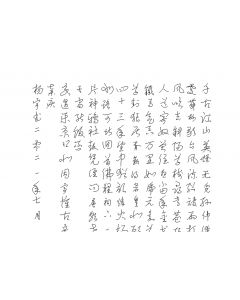 千古江山英雄无觅孙仲谋
处舞榭歌台风流总被雨
风吹去斜阳草树寻常巷
人道寄奴曾住想当年金
铁马气吞万里如虎元嘉草
四十三年望中犹记烽火扬
州路可堪回首佛狸祠下一
片神鸦社鼓凭谁问廉颇
矣尚能饭否
永遇乐京口北固亭怀古辛
弃疾
二零二一年七月